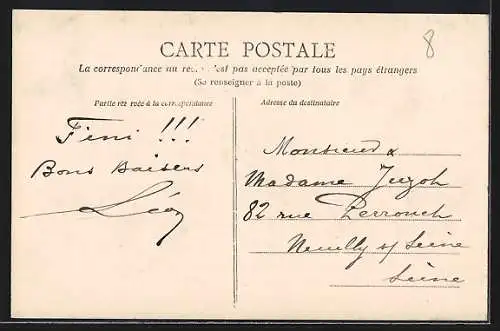 8
CARTE POSTALE
La correspondance au rec n'est pas acceptée par tous les pays étrangers
(Se renseigner à la poste)
Partie réservée à la correspondance
Adresse du destinataire
Fini !!!
Bons Baisers
Léon
Monsieur &
Madame
82 rue Perronet
Neuilly s/ Seine
Seine